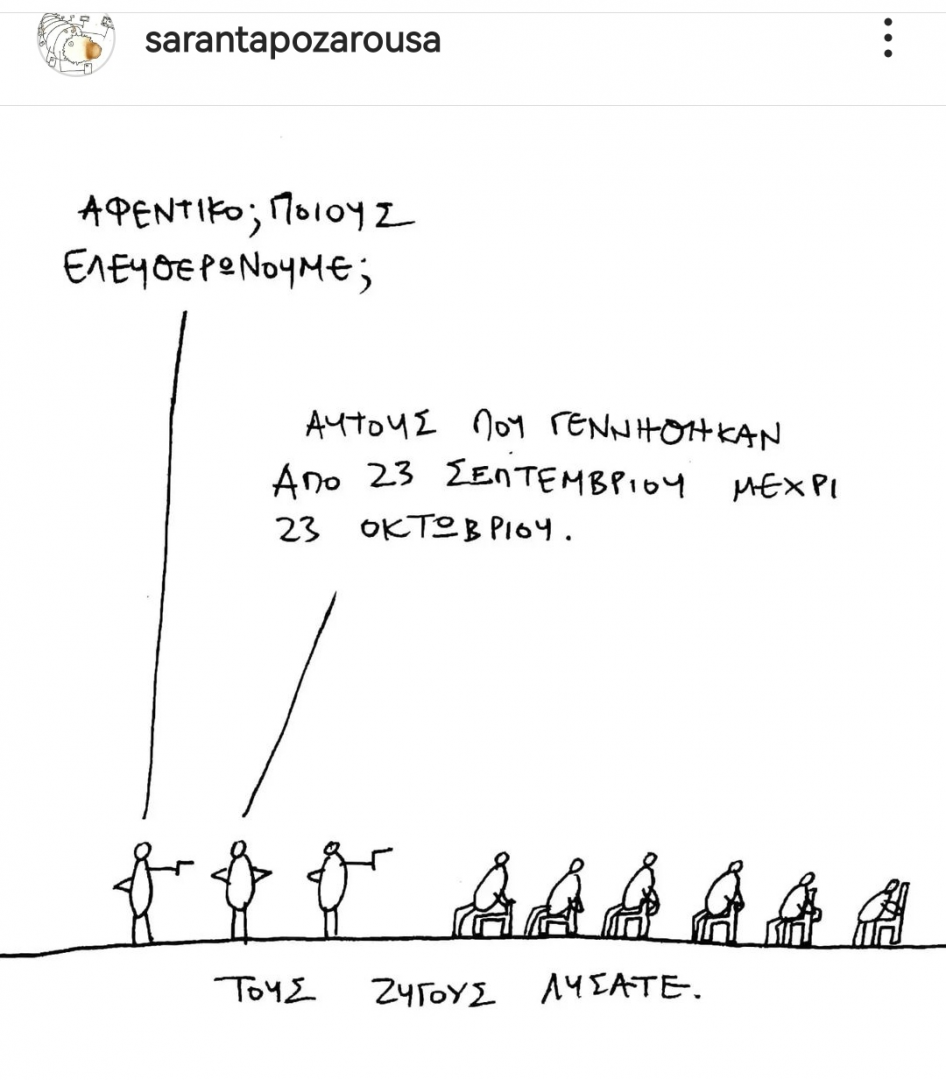 sarantapozarousa
ΑΦΕΝΤΙΚΟ; ΠΟΙΟΥΣ
ΕΛΕΥΘΕΡΩΝΟΥΜΕ;
ΑΥΤΟΥΣ ΠΟΥ ΓΕΝΝΗΘΗΚΑΝ
ΑΠΟ 23 ΣΕΠΤΕΜΒΡΙΟΥ ΜΕΧΡΙ
23 ΟΚΤΩΒΡΙΟΥ.
ΤΟΥΣ ΖΥΓΟΥΣ ΛΥΣΑΤΕ.